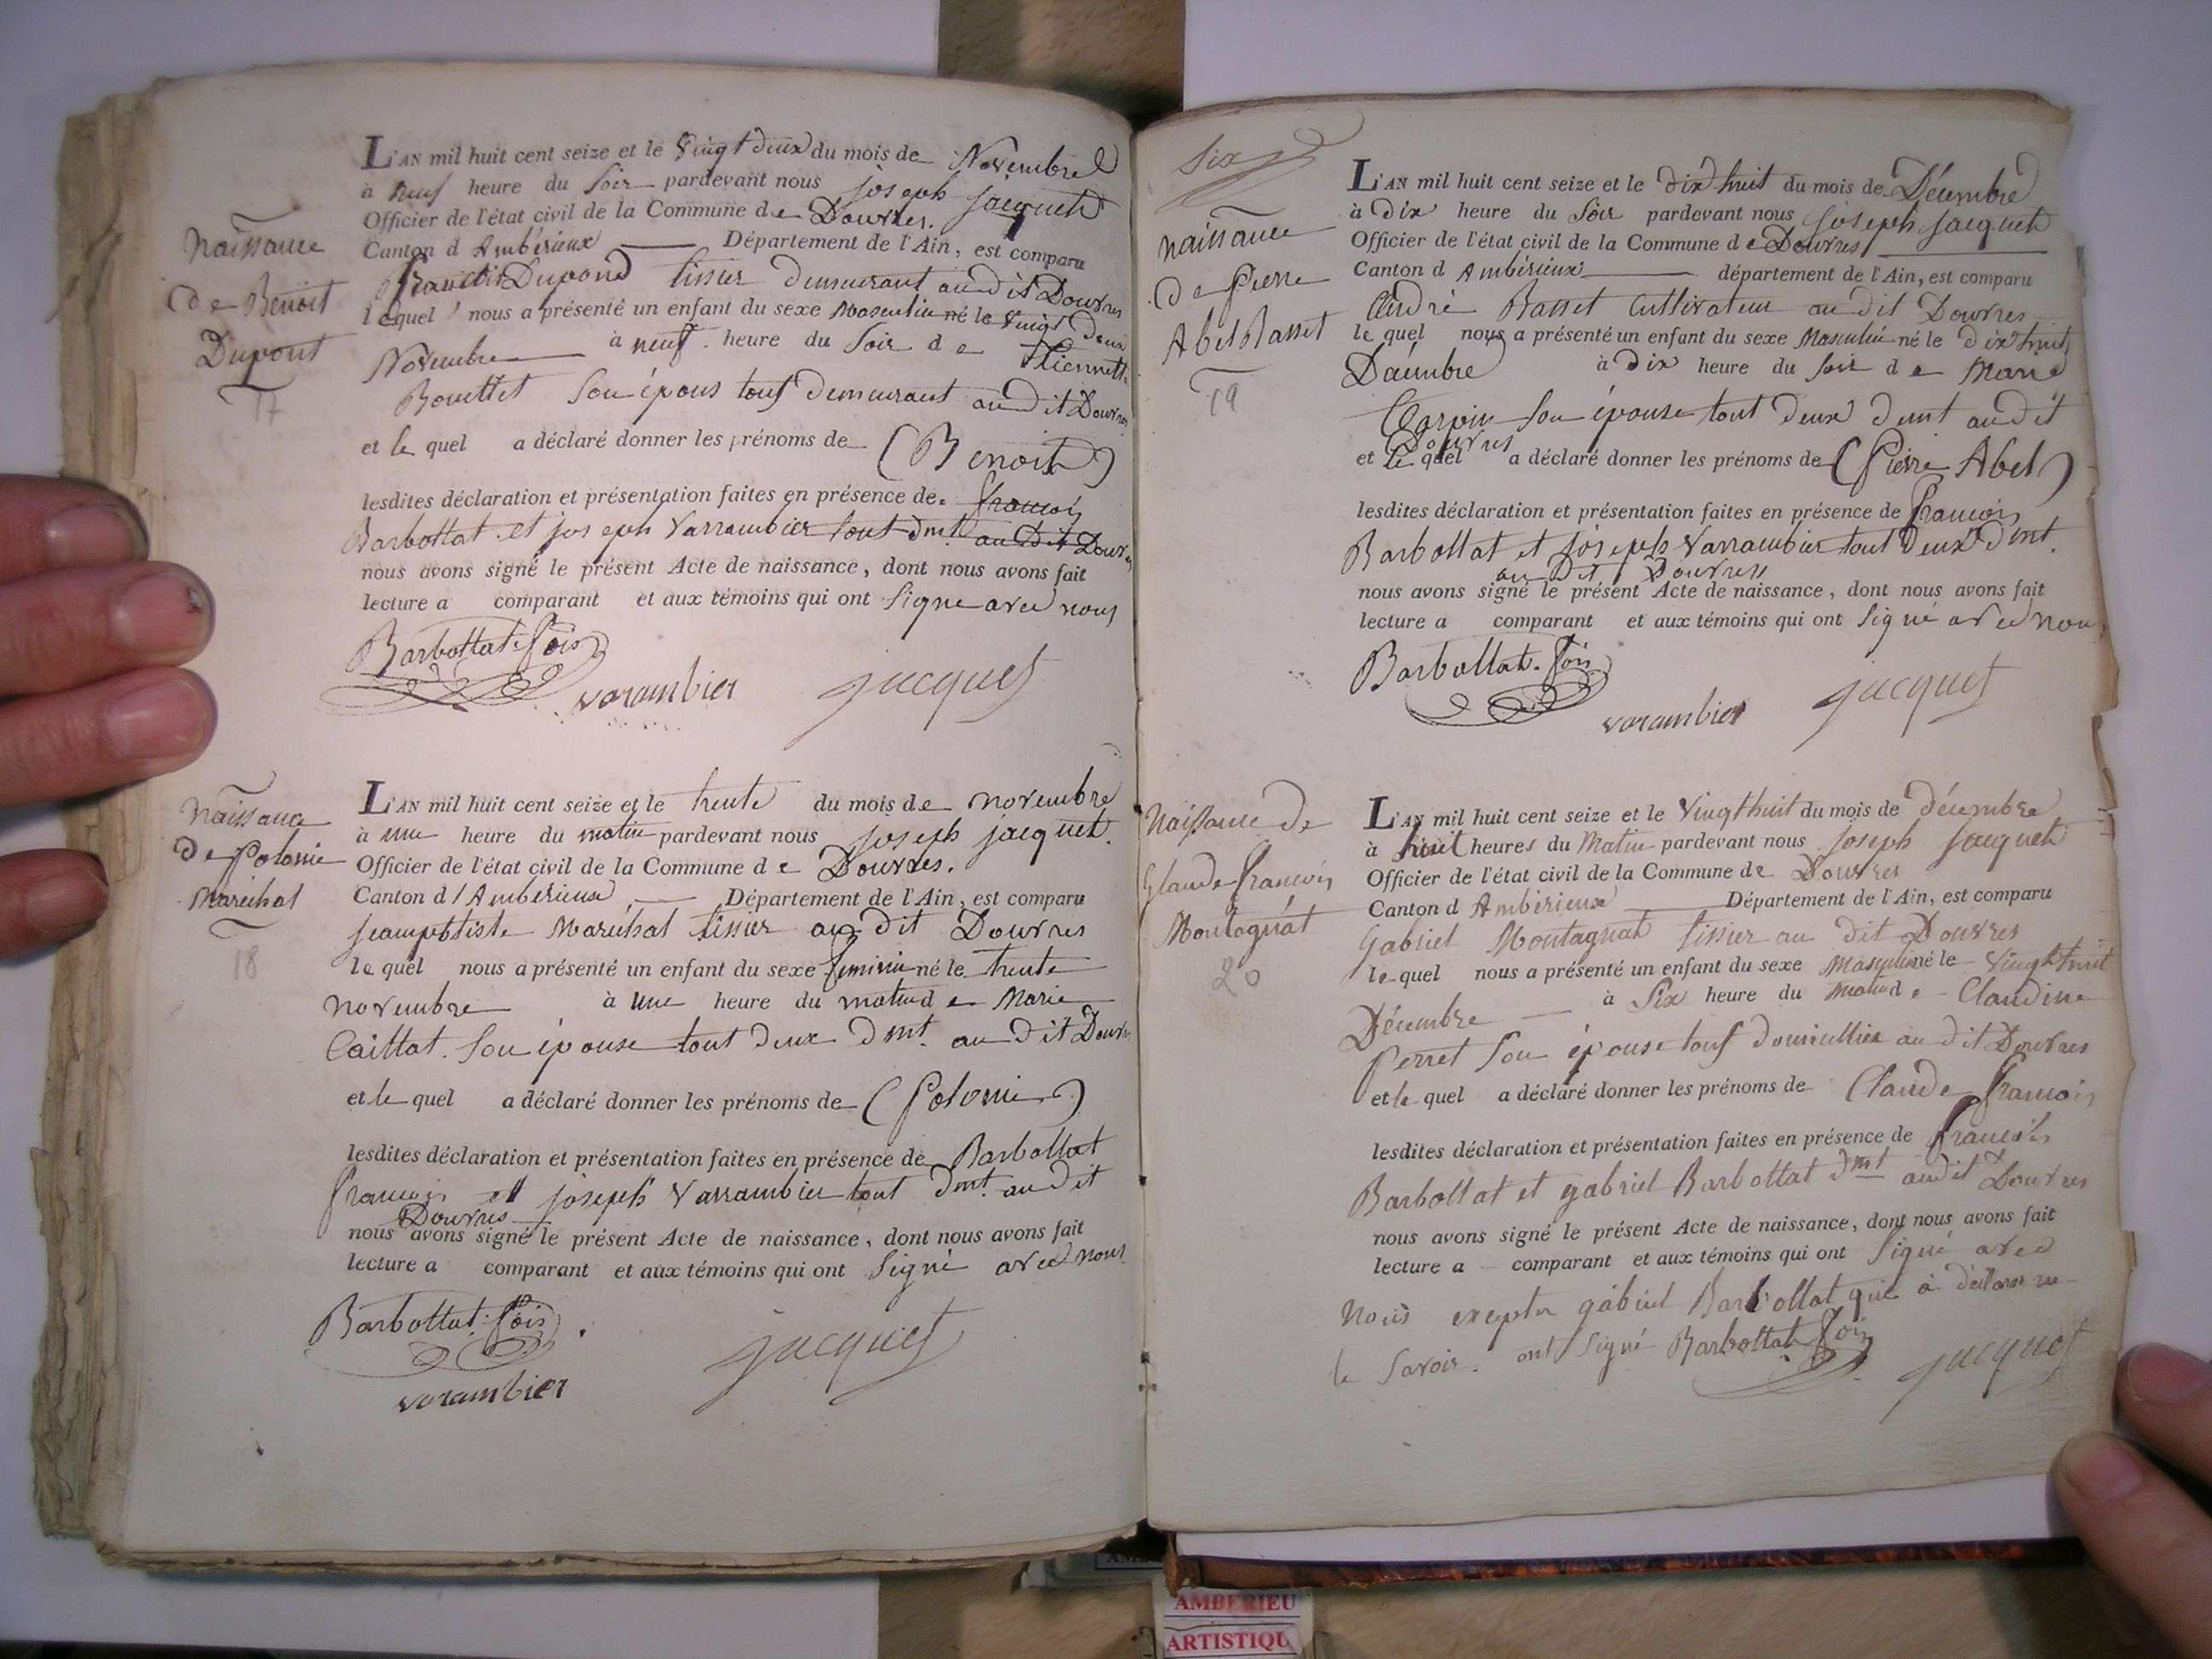 Naissance
de Benoit
Dupont
17
L'AN mil huit cent seize et le vingt deux du mois de Novembre
à neuf heure du soir pardevant nous joseph jacquet
Officier de l'état civil de la Commune de Douvres.
Canton d Ambérieux Département de l'Ain, est comparu
francois Dupond tissier demeurant audit Douvres
lequel nous a présenté un enfant du sexe Masculin né le vingt deux
Novembre à neuf heure du soir de Etiennette
Bouttet son épous tous demeurant au dit Douvres
et le quel a déclaré donner les prénoms de (Benoit)
lesdites déclaration et présentation faites en présence de francois
Barbottat et joseph Varrambier tout dmt au Dit Douvres
nous avons signé le présent Acte de naissance, dont nous avons fait
lecture a comparant et aux témoins qui ont signe avec nous
Barbottat fois
varambier jacquet
Naissance
de Polonie
Maréchal
18
L'AN mil huit cent seize et le trente du mois de novembre
à une heure du matin pardevant nous joseph jacquet.
Officier de l'état civil de la Commune de Douvres.
Canton d'Ambérieux Département de l'Ain, est comparu
jeampbtiste Maréchal tissier au dit Douvres
le quel nous a présenté un enfant du sexe feminin né le trente
novembre à une heure du matin de Marie
Caillat son épouse tout deux dmt. au dit Douvres
et le quel a déclaré donner les prénoms de (Polonie)
lesdites déclaration et présentation faites en présence de Barbottat
francois et joseph Varrambier tout dmt. au dit
Douvres
nous avons signé le présent Acte de naissance, dont nous avons fait
lecture a comparant et aux témoins qui ont signé avec nous
Barbottat fois
jacquet
varambier
six
naissance
de Pierre
Abel Basset
19
L'AN mil huit cent seize et le dix huit du mois de Décembre
à dix heure du soir pardevant nous joseph jacquet
Officier de l'état civil de la Commune de Douvres
Canton d Ambérieux département de l'Ain, est comparu
André Basset Cultivateur au dit Douvres
le quel nous a présenté un enfant du sexe Masculin né le dix huit
Décembre à dix heure du soir de Marie
son épouse tout deux dmt au dit
Douvres
et le quel a déclaré donner les prénoms de (Pierre Abel)
lesdites déclaration et présentation faites en présence de francois
Barbottat et joseph Varrambier tout deux dmt.
au dit Douvres
nous avons signé le présent Acte de naissance, dont nous avons fait
lecture a comparant et aux témoins qui ont signé avec nous
Barbottat fois
varambier jacquet
Naissance de
Claude francois
Montagnat
20
L'AN mil huit cent seize et le vingthuit du mois de décembre
à huit heures du Matin pardevant nous joseph jacquet
Officier de l'état civil de la Commune de Douvres
Canton d Ambérieux Département de l'Ain, est comparu
Gabriel Montagnat tissier au dit Douvres
le quel nous a présenté un enfant du sexe Masculin né le vingt huit
Décembre à six heure du matin de Claudine
Perret son épouse tous domicillier au dit Douvres
et le quel a déclaré donner les prénoms de Claude francois
lesdites déclaration et présentation faites en présence de francois
Barbottat et gabriel Barbottat dmt audit Douvres
nous avons signé le présent Acte de naissance, dont nous avons fait
lecture a comparant et aux témoins qui ont signé avec
Nous excepter gabriel Barbottat qui à déclarer ne
le savoir. ont signé Barbottat fois jacquet
AMBERIEU
ARTISTIQU